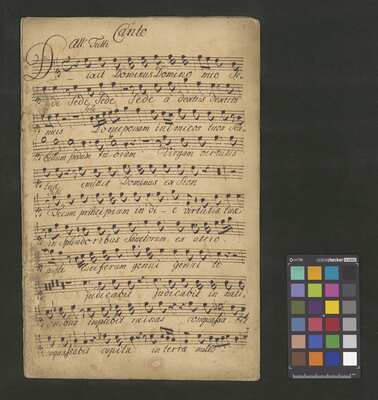 Canto
All: Tutti
Dixit Dominus Domino meo se-
de sede, sede, sede a dextris dextris
meis Donec ponam inimicos tuos sca-
bellum pedum tuorum Virgam virtutis
tuæ emittet Dominus ex Sion
Tecum principium in di-e virtutis tuæ
in splendoribus Sanctorum ex utero.
ante luciferum genui genui te
judicabit judicabit in nati-
onibus implebit ruinas
conquassabit capita in terra multo
colorchecker